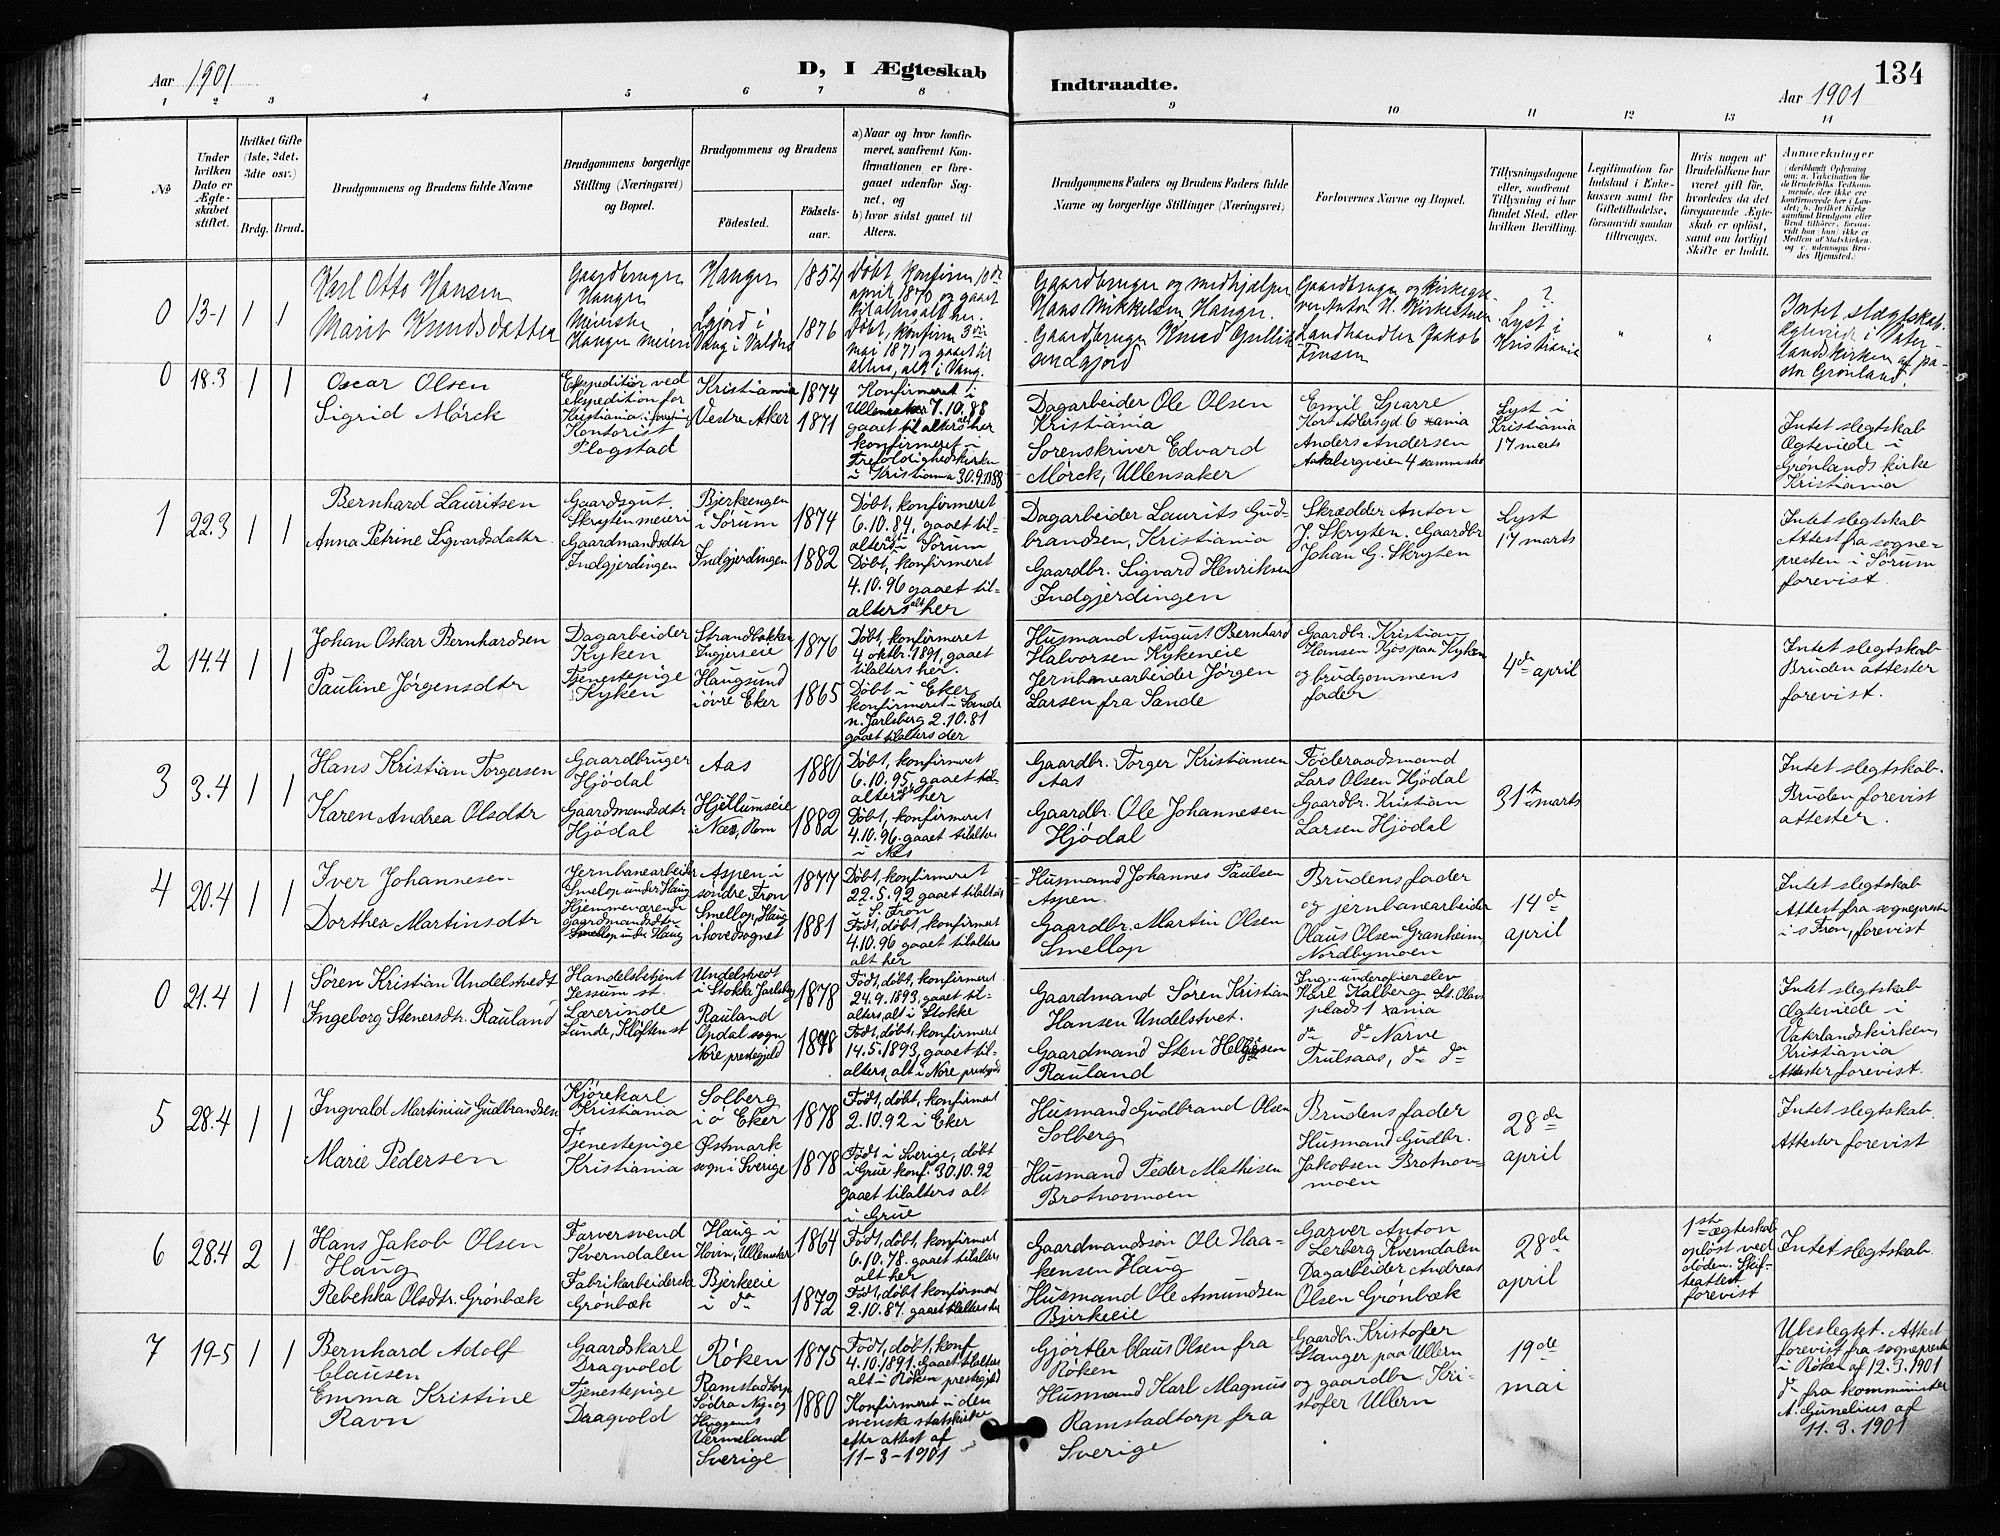 Aar 1901
D, I Ægteskab
Indtraadte.
Aar 1901
134
1 2 3 4 5 6 7 8 9 10 11 12 13 14
No
Under hvilken Dato er Ægteskabet stiftet.
Hvilket Gifte (1ste, 2det, 3dte osv.)
Brdg. Brud.
Brudgommens og Brudens fulde Navne
Brudgommens borgerlige Stilling (Næringsvei) og Bopæl.
Brudgommens og Brudens
Fødested.
Fødselsaar.
a) Naar og hvor konfirmeret, saafremt Konfirmationen er foregaaet udenfor Sognet, og
b) hvor sidst gaaet til Alters.
Brudgommens Faders og Brudens Faders fulde Navne og borgerlige Stillinger (Næringsvei)
Forlovernes Navne og Bopæl.
Tillysningsdagene eller, saafremt Tillysning ei har fundet Sted, efter hvilken Bevilling.
Legitimation for Indskud i Enkekassen samt for Giftetilladelse, forsaavidt saadan tiltrænges.
Hvis nogen af Brudefolkene har været gift før, hvorledes da det foregaaende Ægteskab er opløst, samt om lovligt Skifte er holdt.
Anmærkninger
0 13-1 1 1
Karl Otto Hansen
Marit Knudsdatter
Gaardbruger
Hanger
Meierske
Hanger meieri
Hanger
Vang i Valdres
1854
1876
Døbt, konfirm 10de
april 1870 og gaaet
til alters alt her.
Døbt, konfirm. 3die
mai 1871 og gaaet til
alters, alt i Vang.
Gaardbruger og medhjælper
Hans Mikkelsen Hanger.
Gaardbruger Knud
Gaardbruger og kirkeværge
Anton H.
Landhandler Jakob
?
Lyst i
Kristiania
"
"
Intet slægtskab.
Ægteviede i Vaterlandskirken af pastor Grönland.
0 18.3 1 1
Oscar Olsen
Sigrid Mørck
Ekspeditør ved
ekspedition for
Kristiania
Kontorist
Plogstad
Kristiania
Vestre Aker
1874
1871
Konfirmeret i
Ullensaker 7.10.88
gaaet til alters der her
konfirmeret i
Trefoldighedskirken
i Kristiania 30.9.1888
Dagarbeider Ole Olsen
Kristiania
Sorenskriver Edvard
Mørck, Ullensaker
Emil
Kort Adlersgd. 6 xania
Anders Andersen
Aakebergveien 4 sammested
Lyst i
Kristiania
17 marts
Intet slegtskab
Ægteviede i
Grønlands kirke
Kristiania
1 22.3 1 1
Bernhard Lauritsen
Anna Petrine Sigvardsdatr.
Gaardsgut
Skryten meieri
Gaardmandsdtr
Indgjerdingen
Bjerkeengen
i Sørum
Indgjerdingen
1874
1882
Døbt, konfirmeret
6.10.84, gaaet til
alters i Sørum
Døbt, konfirmeret
4.10.96 gaaet til
alters alt her
Dagarbeider Laurits Gudbrandsen, Kristiania
Gaardbr. Sigvard Henriksen
Indgjerdingen
Skrædder Anton
J. Skryten. Gaardbr
Johan G. Skryten
Lyst
17 marts
Intet slegtskab
Attest fra sognepresten i Sørum
forevist.
2 14.4 1 1
Johan Oskar Bernhardsen
Pauline Jørgensdtr
Dagarbeider
Kyken
Tjenestepige
Kyken
Strandbakken
Ingjerseie
Haugsund
i øvre Eker
1876
1865
Døbt, konfirmeret
4 oktbr. 1891, gaaet
tilalters her.
Døbt i Eker
konfirmeret i Sande
n. Jarlsberg 2.10.81
gaaet tilalters der
Husmand August Bernhard
Halvorsen Kykeneie
Jernbanearbeider Jørgen
Larsen fra Sande
Gaardbr. Kristian
Hansen Kjos paa Kyken
og brudgommens
fader
4de april
Intet slegtskab
Bruden attester
forevist.
3 3.4 1 1
Hans Kristian Torgersen
Karen Andrea Olsdtr
Gaardbruger
Hjødal
Gaardmandsdtr
Hjødal
Aas
Hjellumseie
i Næs, Rom
1880
1882
Døbt, konfirmeret
6.10.95, gaaet til
alters alt her
Døbt, konfirmeret
4.10.96. gaaet tilalters
i Næs
Gaardbr. Torger Kristiansen
Aas
Gaardbr. Ole Johannesen
Hjødal
Føderaadsmand
Lars Olsen Hjødal
Gaardbr. Kristian
Larsen Hjødal
31te marts
Intet slegtskab.
Bruden forevist
attester.
4 20.4 1 1
Iver Johannesen
Dorthea Martinsdtr
Jernbanearbeider
Smelop under Haug
Hjemmeværende
gaardmandsdtr
Smellop under Haug
Aspen i
søndre Fron
Smellop, Haug
i hovedsognet
1877
1881
Døbt, konfirmeret
22.5.92 gaaet tilalters
i S. Fron
Født, døbt, konfirmeret
4.10.96 gaaet tilalters
alt her
Husmand Johannes Paulsen
Aspen.
Gaardbr. Martin Olsen
Smellop
Brudens fader
og jernbanearbeider
Olaus Olsen Granheim,
Nordbymoen
14de
april
Intet slegtskab
Attest fra sognepresten
i s. Fron, forevist
0 21.4 1 1
Søren Kristian Undelstvedt
Ingeborg Stenersdtr. Rauland
Handelsbetjent
Jessum st.
Lærerinde
Lunde, Kløften st
Undelstvedt
i Stokke Jarlsberg
Rauland
Opdal sogn,
Nore prestegjeld
1878
1878
Født, døbt, konfirmeret
24.9.1893, gaaet til
alters, alt i Stokke
Født, døbt, konfirmeret
14.5.1893, gaaet til
alters, alt i Nore prestegjeld
Gaardmand Søren Kristian
Hansen Undelstvet.
Gaardmand Sten Helgesen
Rauland
Ing. underofficerselev
Karl Kalberg St. Olavs
plads 1 xania
do do Narve
Trulsaas, do do
Intet slegtskab
Ægteviede i
Vaterlandskirken,
Kristiania
Attester forevist.
5 28.4 1 1
Ingvald Martinius Gudbrandsen
Marie Pedersen
Kjørekarl
Kristiania
Tjenestepige
Kristiania
Solberg
i ø Eker
Østmark
sogn i Sverige
1878
1878
Født, døbt, konfirmeret
2.10.92 i Eker
Født i Sverige, døbt
i Grue konf. 30.10.92
gaaet tilalters alt
i Grue
Husmand Gudbrand Olsen
Solberg
Husmand Peder Mathisen
Brotnovmoen
Brudens fader
Husmand Gudbr.
Jakobsen Brotnovmoen
28de
april
Intet slegtskab.
Attester forevist
6 28.4 2 1
Hans Jakob Olsen
Haug
Rebekka Olsdtr. Grønbæk
Farversvend
Kverndalen
Fabrikarbeiderske
Grønbæk
Haug i
Hovin, Ullensaker
Bjerkeeie
i do
1864
1872
Født, døbt, konfirmeret
6.10.78. gaaet tilalters
alt her
Født, døbt, konfirmeret
2.10.87. gaaet tilalters her
Gaardmandssøn Ole Haakensen Haug
Husmand Ole Amundsen
Bjerkeeie
Garver Anton
Lerberg Kverndalen
Dagarbeider Andreas
Olsen Grønbæk
28de
april
1ste ægteskab
opløst ved
døden. Skifteattest
forevist
Intet slegtskab
7 19-5 1 1
Bernhard Adolf
Clausen
Emma Kristine
Ravn
Gaardskarl
Dragvold
Tjenestepige
Dragvold
Røken
Ramstadtorp
Södra Ny og
Huggenes
Vermeland
Sverige
1875
1880
Født, døbt, konf
4.10.1891. Gaaet tilalters
alt i Røken prestegjeld
Konfirmeret i den
svenska statskirke
eftr attest af
11-3-1901
Gjørtler Claus Olsen fra
Røken
Husmand Karl Magnus
Ramstadtorp fra
Sverige
Gaardbr. Kristofer
Stanger paa Ullern
og gaardbr. Kristofer Ullern
19de
mai
Ubeslegtet. Attest
forevist fra sogneprest
i Røken af 12.3.1901
do fra kommunister
A. Gunelius af
11.3.1901